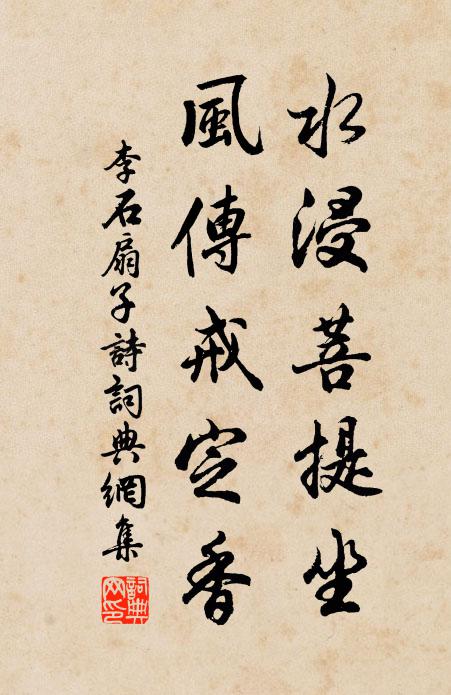 水浸菩提坐
風傳戒定香
李石扇子詩詞典網集
詞典網印